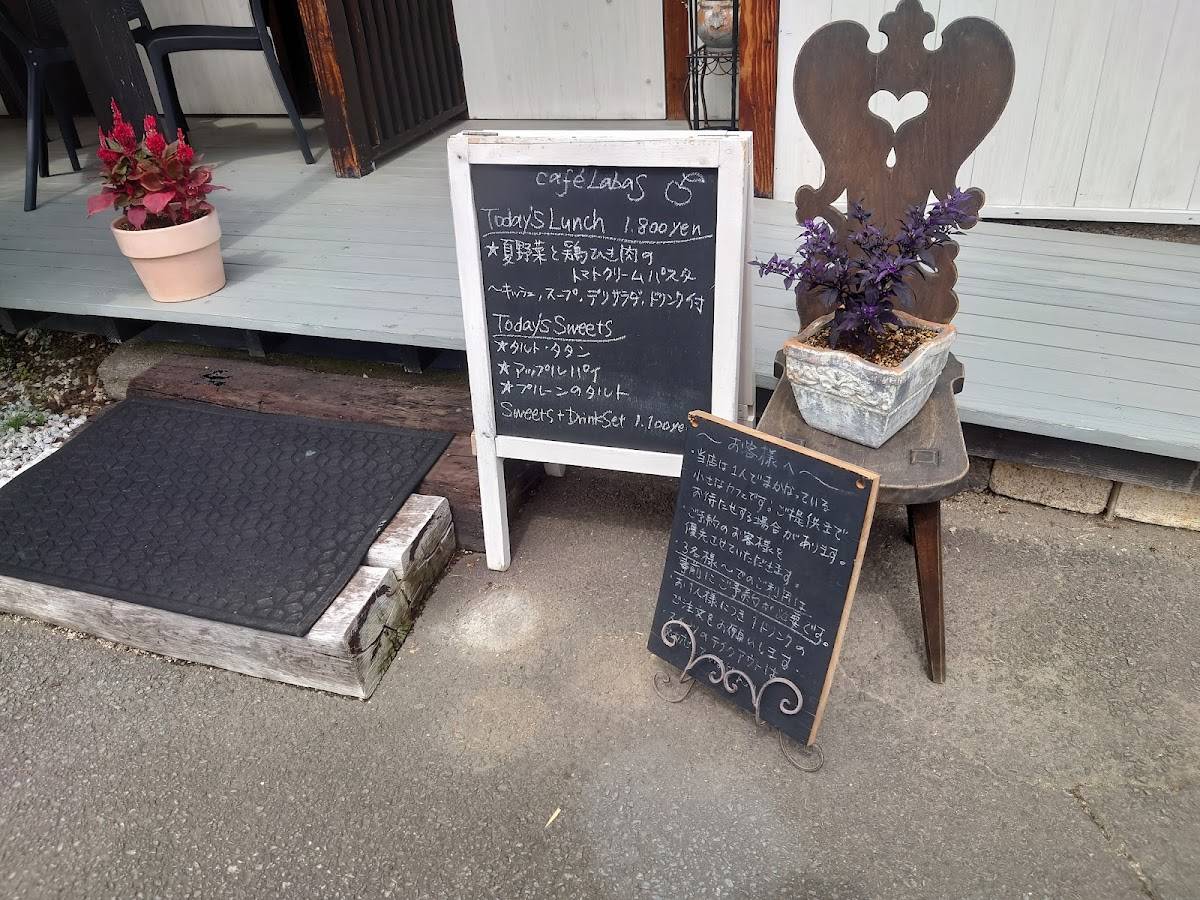 café Labas
Today's Lunch 1.800yen
★夏野菜と鶏ひき肉の
トマトクリームパスタ
〜キッシュ,スープ,デリサラダ,ドリンク付
Today's Sweets
★タルト・タタン
★アップルパイ
★プルーンのタルト
Sweets+DrinkSet 1.100ye
〜お客様へ〜
・当店は1人でまかなっている
小さなカフェです。ご提供まで
お待たせする場合があります。
・ご予約のお客様を
優先させていただきます。
・3名様〜でのご利用は
事前にご予約が必要です。
・お1人様につき1ドリンクの
ご注文をお願いします
のテイクアウトは